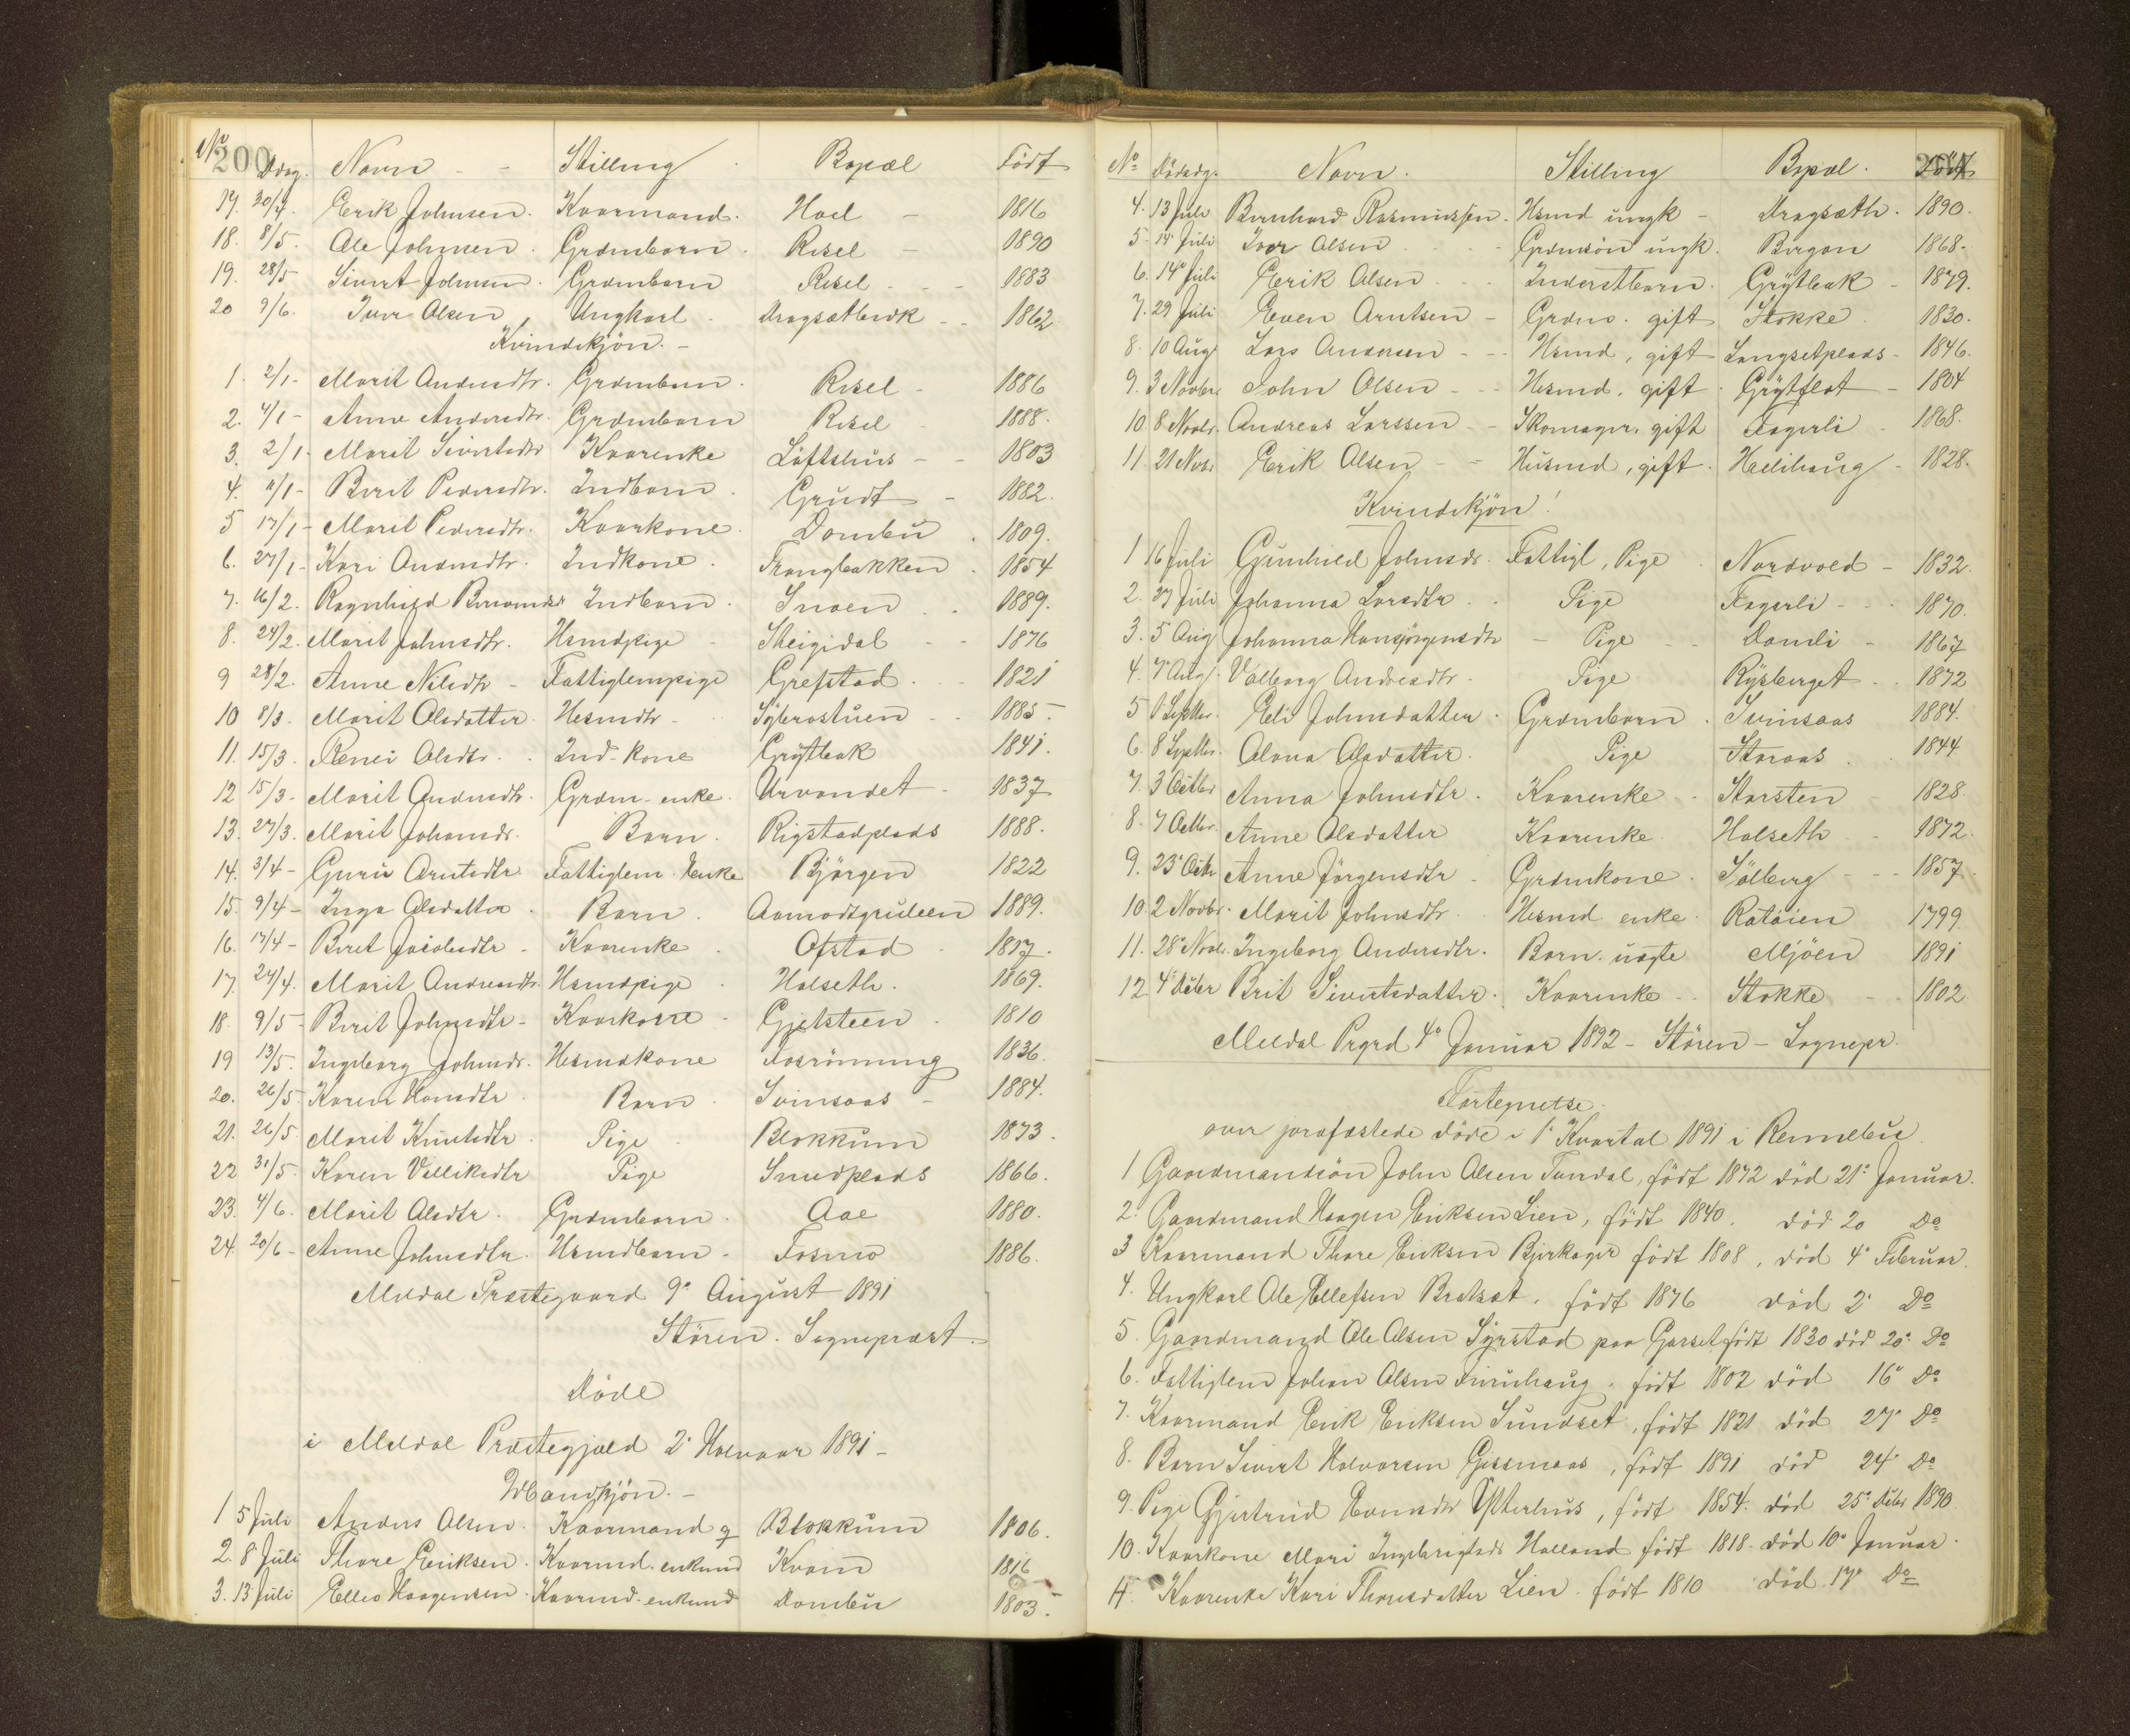 200
No Ddag. Navn - Stilling Bopæl Født
17. 30/4. Erik Johnsen. Kaarmand. Hoel - 1816
18. 8/5. Ole Johnsen. Grdmbarn. Resel - 1890
19. 28/5 Sivert Johnsen. Grdmbarn Resel - - 1883
20 9/6. Iver Olsen Ungkarl - Dragsætbræk - - 1862
Kvindekjøn. -
1. 2/1 - Marit Andersdtr. Grdmbarn. Resel - 1886
2. 4/1 - Anne Andersdtr. Grdmbarn Resel 1888.
3. 2/1 - Marit Sivertsdtr Kaarenke Løftshus - - 1803
4. 11/1 - Berit Pedersdtr. Indbarn. Grudt - 1882.
5 17/1 - Marit Pedersdtr. Kaarkone. Dombu. 1809.
6. 27/1 - Kari Andersdtr. Indkone. Trangbakken. 1854
7. 16/2. Ragnhild Indbarn. Snoen. . 1889.
8. 24/2. Marit Johnsdtr. Hsmdpige - Steigidal - - 1876
9 28/2. Anne Nilsdtr - Fattiglempige Grefstad. - - 1821
10 8/3. Marit Olsdatter. Hesmdtr - Syberostuen - - 1885 -
11. 15/3. Renei Olsdtr. . Ind-kone Grøtbak 1841.
12 15/3 - Marit Andersdtr. Grdm-enke. Urvandet - 1837
13. 27/3. Marit Johansdr. Barn. Rigstadplads 1888.
14. 3/4 - Guru Arntsdtr Fattiglem Henke Bjørgen 1822
15. 9/4 - Inga Olsdatter. Barn. Aamodtgrudeen 1889.
16. 17/4 - Beret Jacobsdtr - Kaarenke. Ofstad 1817.
17. 24/4. Marit Andersdtr. Hsmdpige. Halseth. 1869.
18. 9/5 - Berit Johnsdtr - Kaarkone - Gjelsteen. 1810
19 13/5. Ingeborg Johnsdr. Hesmdkone Fosrønning 1836.
20. 26/5. Karen Hansdtr. Barn. Svinsaas - 1884.
21. 26/5. Marit Knutsdtr. Pige. Blokkum 1873.
22 31/5. Karen Villiksdtr Pige Snudplads 1866.
23. 4/6. Marit Olsdtr. Grdmbarn. Aae 1880.
24. 20/6 - Anne Johnsdtr. Hsmdbarn - Fosmo 1886.
Meldal Præstegaard 9. August 1891
Støren. Sognepræst.
Døde
i Meldal Præstegjæld 2. Halvaar 1891 -
Mandkjøn. -
1 5 Juli Anders Olsen. Kaarmand g Blokkum 1806.
2. 8 Juli Thore Eriksen. Kaarmd. enkmd Kvam 1816
3. 13 Juli Ellev Haagensen. Kaarmd. enkmd Dombu 1803.
No Dødsdg. Navn. Stilling Bopæl. Født
4. 13 Juli Bernhard Rasmussen. Hsmd ungk - Dragsæth. 1890.
5. 14 Juli Ivar Olsen - Grdmsøn ungk. Bergan 1868.
6. 14 Juli Erik Olsen - - Inderstbarn. Grøtbak - 1879.
7. 29 Juli Even Arntsen - Grdmd. gift Stokke. 1830.
8. 10 Aug. Lars Andersen - - Hsmd, gift Langsetplads - 1846.
9. 3 Novbr John Olsen - - Hesmd. gift. Grøtflot - 1804
10 8 Novbr. Andreas Larssen - - Skomager. gift Fagerli - 1868.
11 21 Nvbr Erik Olsen - - Husmd, gift. Heilihaug - 1828.
Kvindekjøn!
1 16 Juli Gunhild Johnsdr. Fattigl, Pige. Nordvold - 1832.
2. 27 Juli Johanna Larsdtr. . Pige Fagerli - - 1870.
3. 5 Aug Johanna Hansjørgensdtr - Pige - - Damli - 1867
4. 7 Aug. Valborg Andersdtr. Pige Rysberget - . 1872
5 Septbr. Eli Johnsdatter. Grdmbarn. Svinsaas 1884.
6. 8 Septbr. Olava Olsdatter. Pige Storaas. . 1844
7. 3 Octbr Anna Johnsdtr. Kaarenke - Storsten 1828.
8. 7 Octbr. Anne Olsdatter Kaarenke Halseth - 1872
9. 23 Octbr Anne Jørgensdtr - Grdmkone. Sølberg - - 1857.
10. 2 Novbr. Marit Johnsdtr. Hesmd. enke. Ratøien 1799.
11. 28 Novb. Ingeborg Andersdtr. Barn. uægte Mjøen 1891
12 4 Decbr Brit Sivertsdatter. Kaarenke - . Stokke - 1802
Meldal Prgrd 4. Januar 1892 - Støren - Sognepr.
Fortegnelse.
over jordfæstede døde i 1. Kvartal 1891 i Rennebu.
1 Gaardmandsøn John Olsen Tundal, født 1872 død 21. Januar.
2. Gaardmand Haagen Eriksen Lien, født 1840. død 20 Do
3 Kaarmand Thore Eriksen Bjerkager født 1808, død 4. Februar.
4. Ungkarl Ole Ellefsen Bratset, født 1876 død 2. Do
5. Gaardmand Ole Olsen Syrstad paa Garset født 1830 død 20. Do
6. Fattiglem Johan Olsen født 1802 død 16. Do
7. Kaarmand Erik Eriksen Sundset, født 1821 død 27. Do
8. Barn Sivert Halvorsen Gissmaas, født 1891 død 24. Do
9. Pige Gjertrud Evensdtr Ytterhus, født 1854. død 25. Decbr 1890
10. Kaarkone Mari Ingebrigtsdr Halland født 1818. død 10. Januar.
11. Kaarenke Kari Thoresdatter Lien. født 1810 død 17. Do